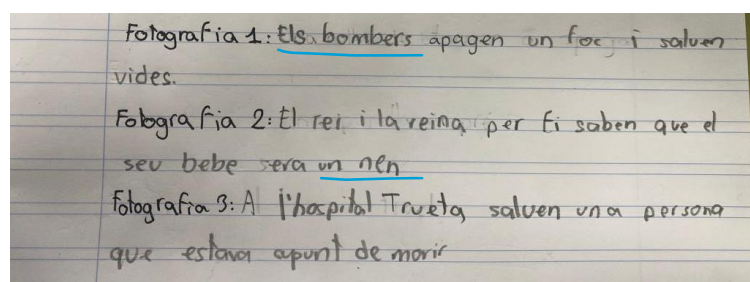 Fotografia 1: Els bombers apagen un foc i salven
vides.
Fotografia 2: El rei i la reina per fi saben que el
seu bebe sera un nen
Fotografia 3: A l'hospital Trueta salven una persona
que estava apunt de morir